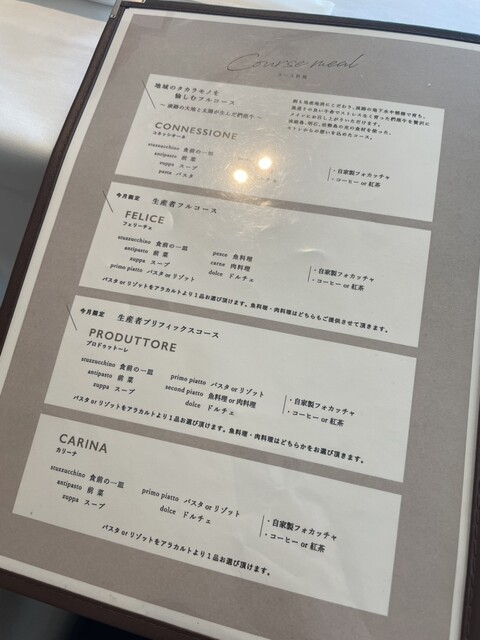 Course meal
コース料理
地域のタカラモノを
愉しむフルコース
～ 淡路の大地と太陽が育んだ椚座牛 ～
CONNESSIONE
コネッシオーネ
stuzzucchino 食前の一皿
antipasto 前菜
zuppa スープ
pasta パスタ
・自家製フォカッチャ
・コーヒー or 紅茶
今月限定 生産者フルコース
FELICE
フェリーチェ
stuzzucchino 食前の一皿
antipasto 前菜
zuppa スープ
primo piatto パスタ or リゾット
pesce 魚料理
carne 肉料理
dolce ドルチェ
・自家製フォカッチャ
・コーヒー or 紅茶
パスタ or リゾットをアラカルトより1品お選び頂けます。魚料理・肉料理はどちらもご提供させて頂きます。
今月限定 生産者プリフィックスコース
PRODUTTORE
プロドゥットーレ
stuzzucchino 食前の一皿
antipasto 前菜
zuppa スープ
primo piatto パスタ or リゾット
second piatto 魚料理 or 肉料理
dolce ドルチェ
・自家製フォカッチャ
・コーヒー or 紅茶
パスタ or リゾットをアラカルトより1品お選び頂けます。魚料理・肉料理はどちらかをお選び頂きます。
CARINA
カリーナ
stuzzucchino 食前の一皿
antipasto 前菜
zuppa スープ
primo piatto パスタ or リゾット
dolce ドルチェ
・自家製フォカッチャ
・コーヒー or 紅茶
パスタ or リゾットをアラカルトより1品お選び頂けます。